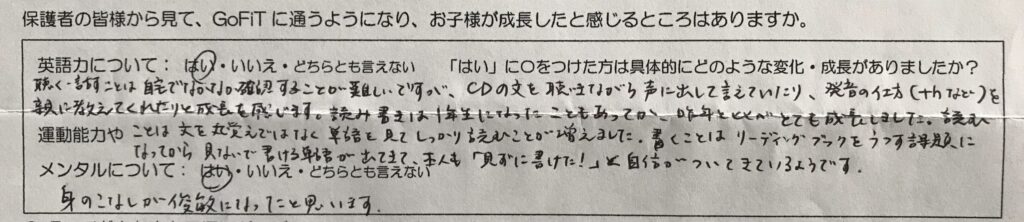 保護者の皆様から見て、GoFiTに通うようになり、お子様が成長したと感じるところはありますか。
英語力について：　はい・いいえ・どちらとも言えない　　「はい」に〇をつけた方は具体的にどのような変化・成長がありましたか？
聴く・話すことは自宅でなかなか確認することが難しいですが、CDの文を聴きながら声に出して言えていたり、発音の仕方（thなど）を
親に教えてくれたりと成長を感じます。読み書きは1年生になったこともあってか、昨年とくらべとても成長しました。読む
運動能力や　ことは文を丸覚えではなく単語を見てしっかり読むことが増えました。書くことはリーディングブックをうつす課題に
なってから見ないで書ける単語がでてきて、本人も「見ずに書けた！」と自信がついてきているようです。
メンタルについて：　はい・いいえ・どちらとも言えない
身のこなしが俊敏になったと思います。